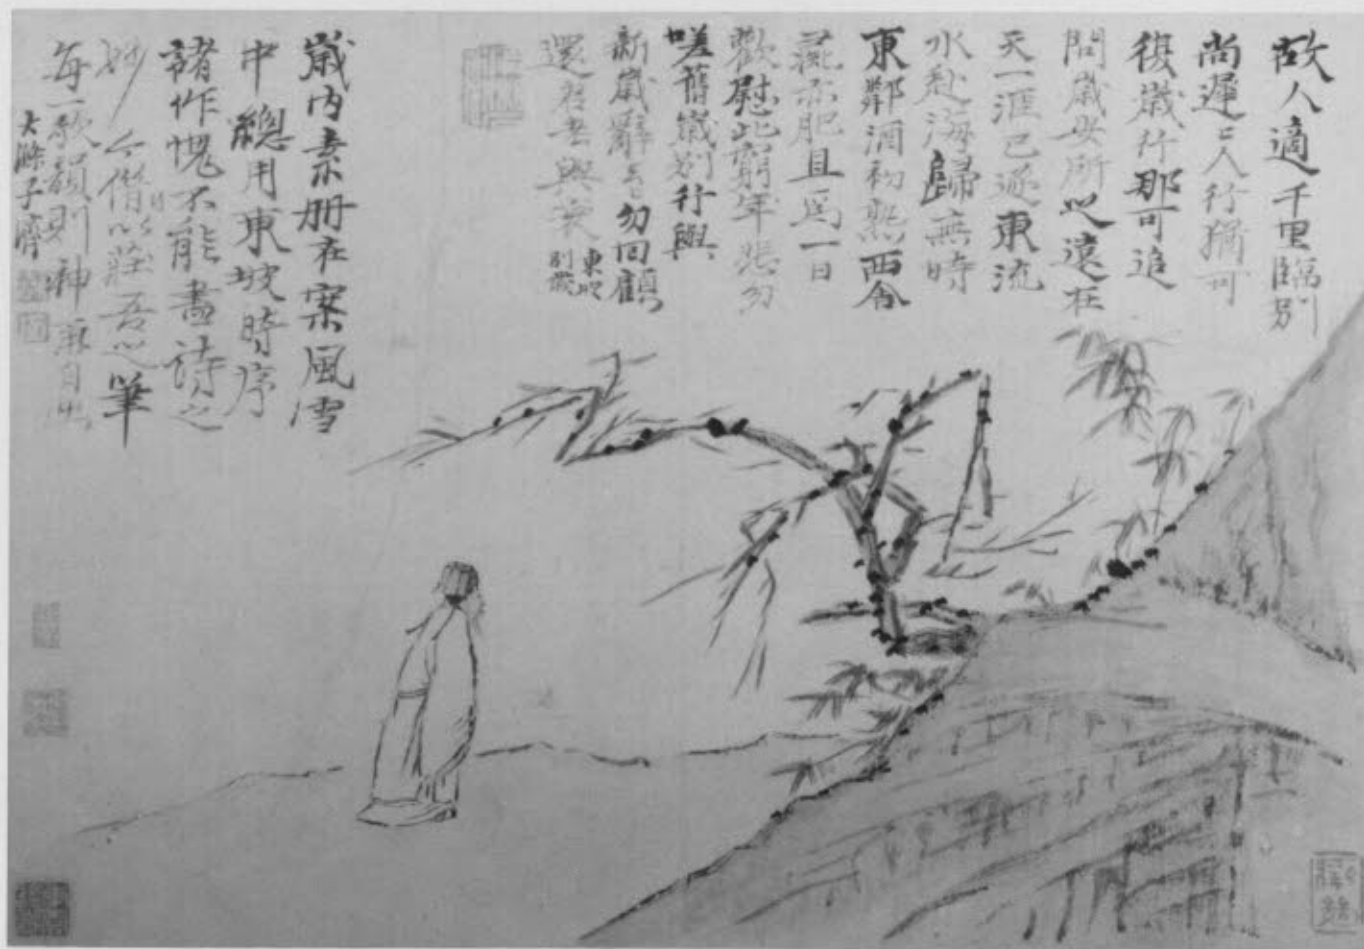 故人適千里臨別
尚遲遲人行猶可
復歲行那可追
問歲安所之遠在
天一涯已逐東流
水赴海歸無時
東鄰酒初熟西舍
彘亦肥且為一日
歡慰此窮年悲勿
嗟舊歲別行與
新歲辭去勿回顧
還君老與衰
東坡
別歲
歲內素冊在案風雪
中總用東坡時序
諸作愧不能盡詩之
妙今借以莊吾之筆
每一歌韻則神
大滌子濟